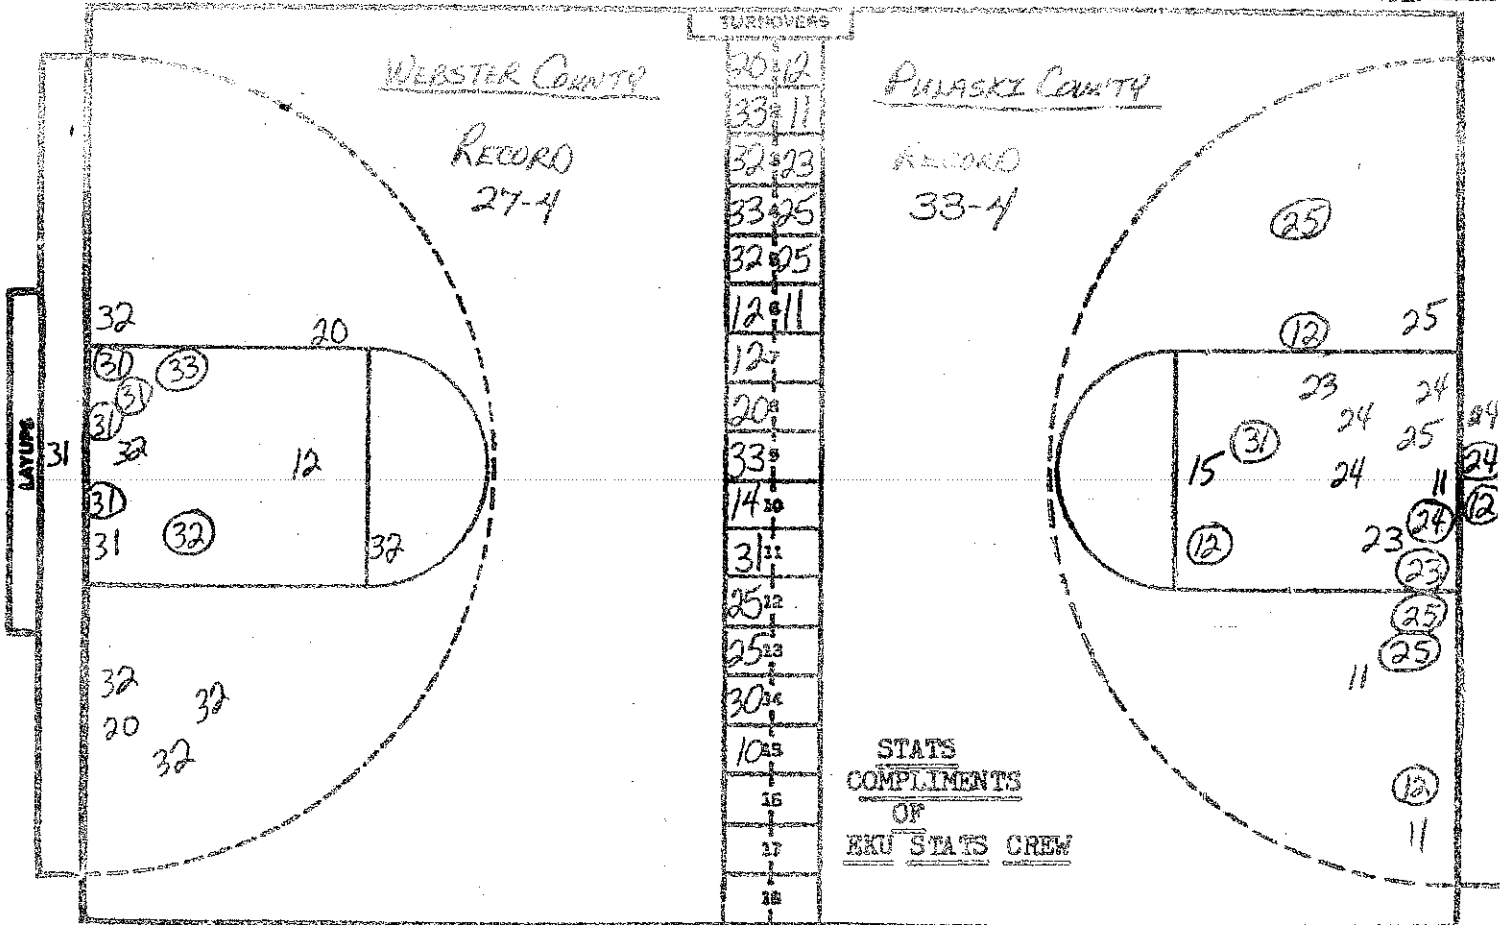 TURNOVERS
WEBSTER COUNTY
RECORD
27-4
PULASKI COUNTY
RECORD
33-4
20 1 12
33 2 11
32 3 23
33 4 25
32 5 25
12 6 11
12 7
20 8
33 9
14 10
31 11
25 12
25 13
30 14
10 15
16
17
18
LAYUPS
32
20
31
33
31
31
32
31
12
31
31
32
32
32
32
20
32
25
12
25
23
24
24
24
31
25
15
24
24
11
12
24
12
23
23
25
25
11
12
11
STATS
COMPLIMENTS
OF
EKU STATS CREW